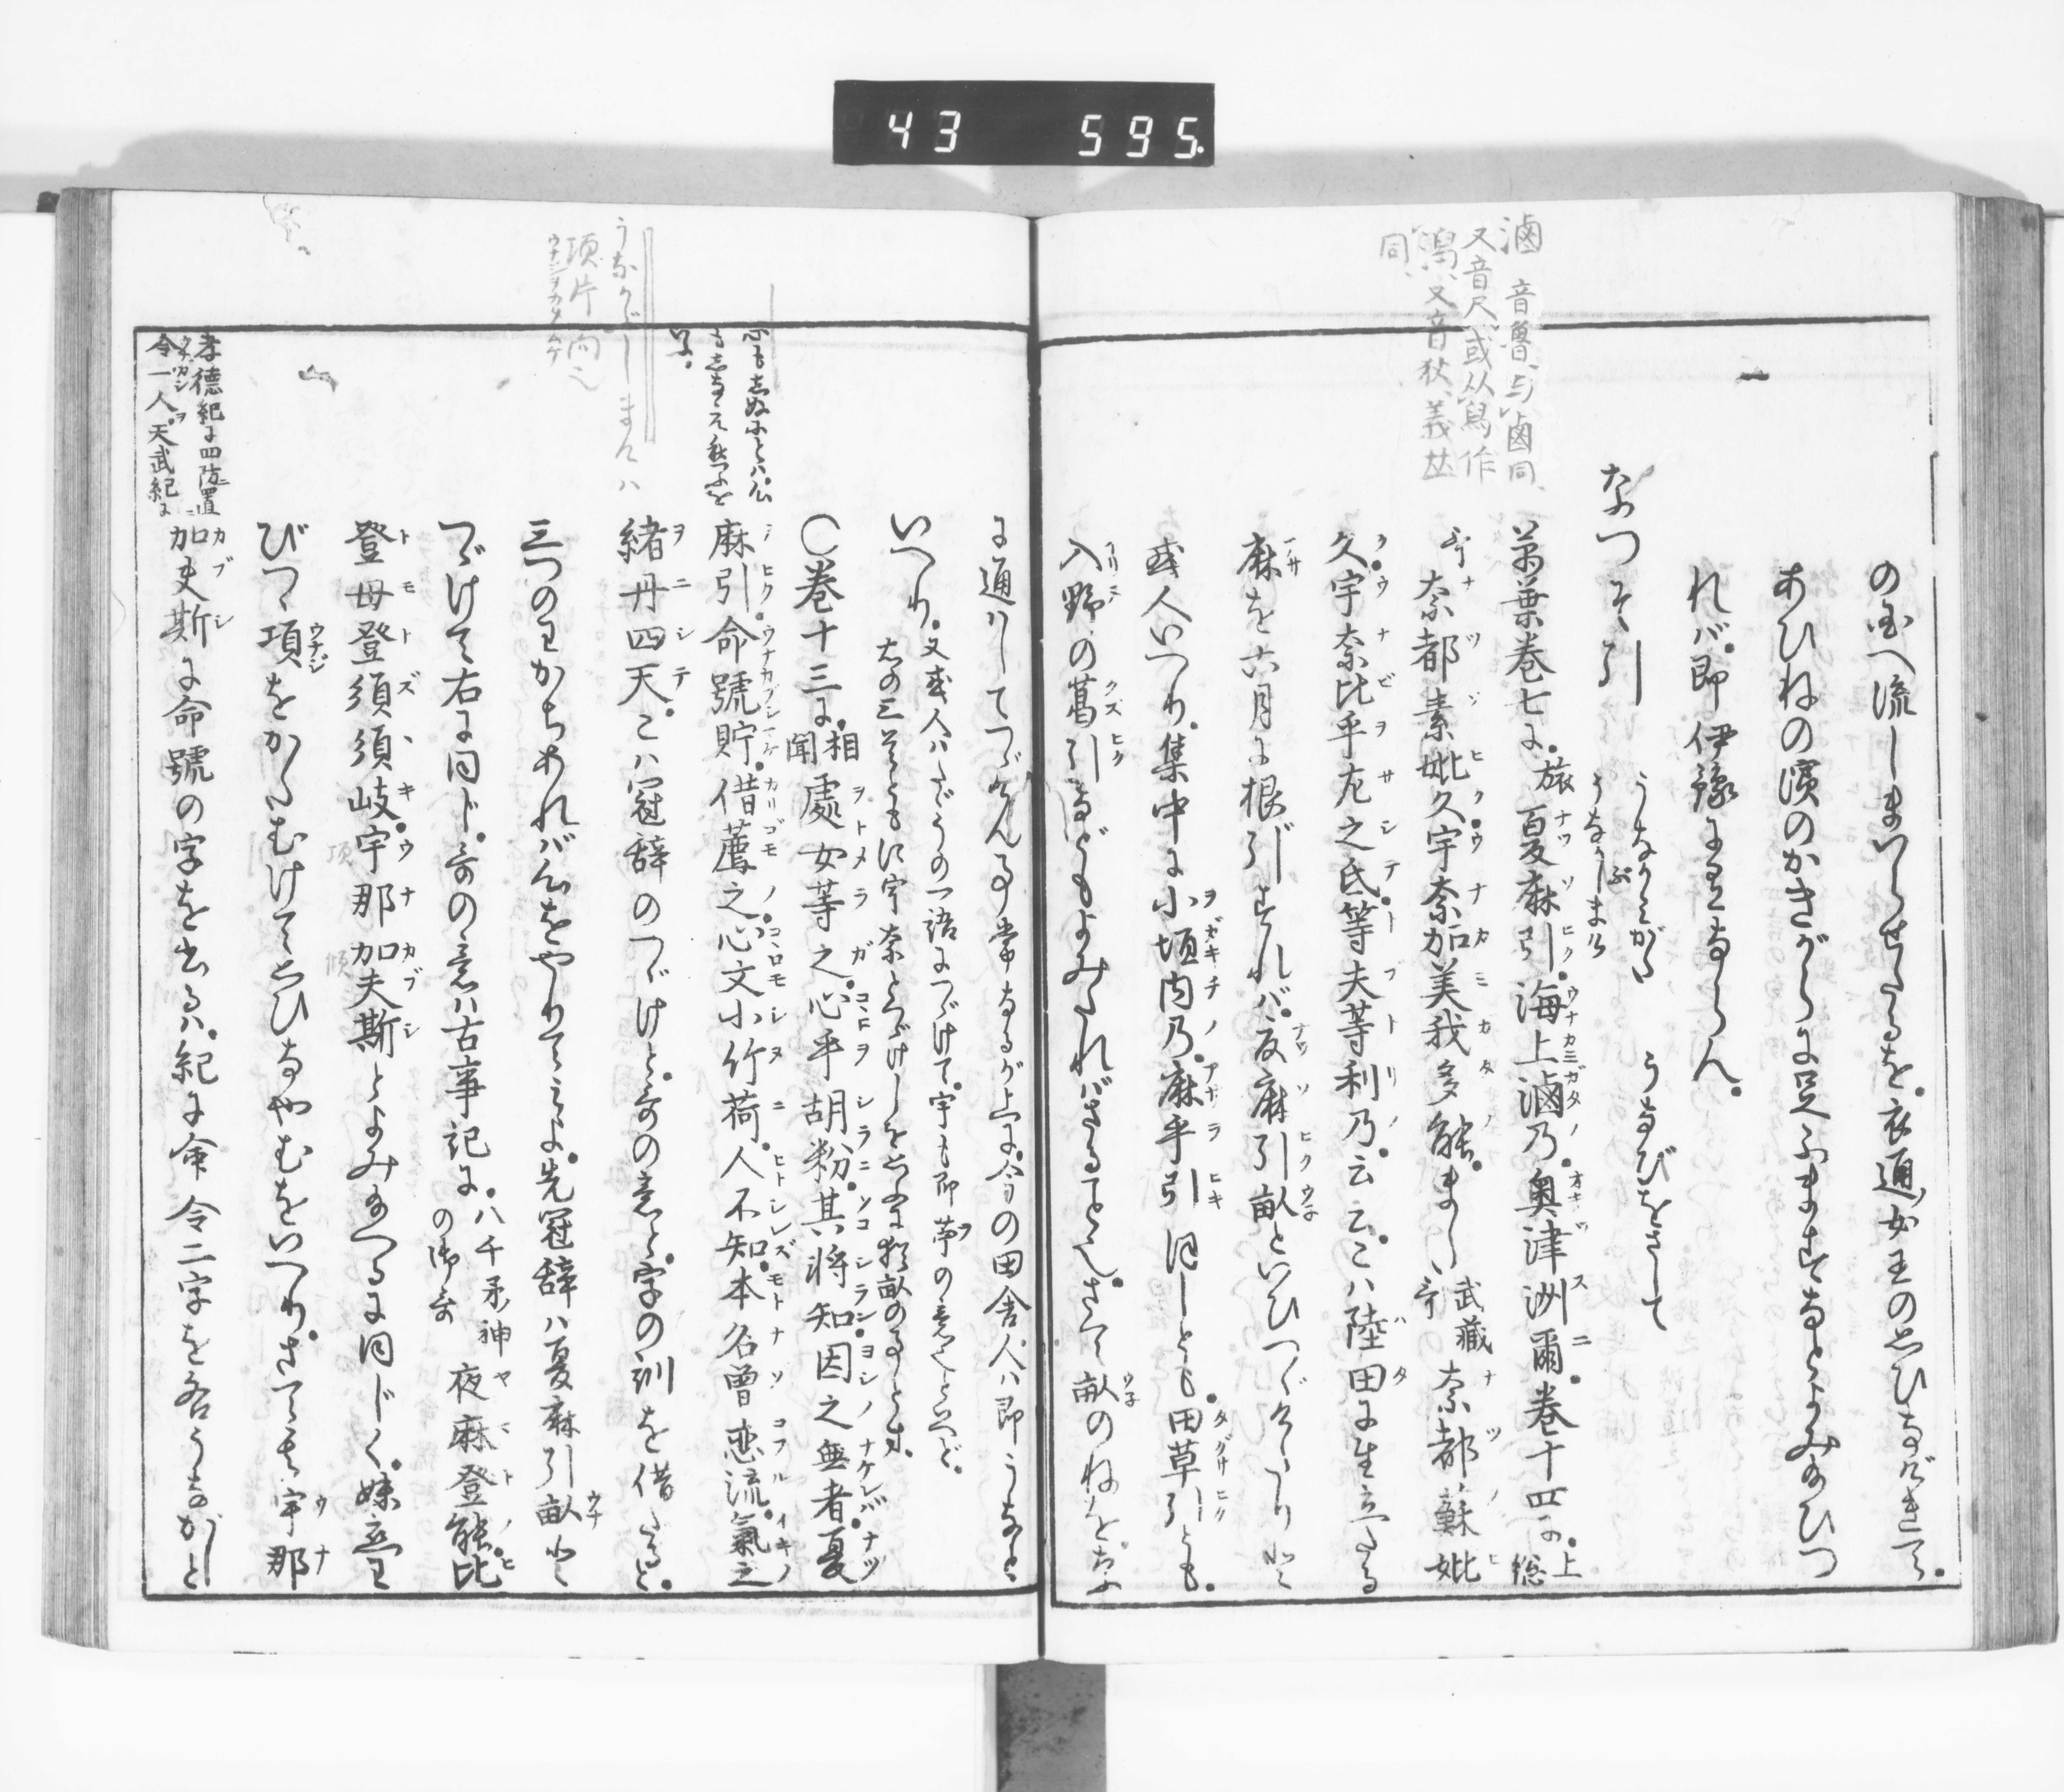 43 595.
滷 音魯、与鹵同、
又音尺、或从舄作
潟、又音狄、義𠀋
同、
の国へ流しまつらせたるを。衣通女王の思ひなげきて。
あひねの濱のかきがらに足ふますなとよみ給ひつ
れバ。即伊豫に至ならん。
なつそ引 うなかみがた うなびをさして
うなかぶしまけ
萬葉巻七に。旅 夏麻引。海上滷乃。奥津洲爾。巻十四に。上総
哥 奈都素妣久。宇奈加美我多能。また武藏哥 奈都蘇妣
久。宇奈比乎左之氐。等夫等利乃。云云。こハ陸田に生立たる
麻を六月に根引すれバ。夏麻引畝といひつゞけたりけん
或人いへり。集中に小垣内乃。麻乎引ほしとも。田草引とも。
入野の葛引などもよみたれバさることなり。さて畝のねをなに
に通ハしてつゞけん事常なるが上に。今の田舎人ハ即うなと
いへり。又或人ハたゞうの一語につゞけて。宇も即苧の意なりといへど。
右の三首ともに宇奈とつゞけしを思ふに猶畝のことなり。
〇巻十三に。相聞 處女等之。心乎胡粉。其将知因之無者。夏
麻引。命號貯。借薦之。心文小竹荷。人不知。本名曽恋流。氣之
緒丹四天。こハ冠辞のつゞけと。哥の意と。字の訓を借たると。
三つのわかちあれバ。心をやりてみよ。先冠辞ハ夏麻引畝と
つゞけて右に同じ。哥の意ハ古事記に。八千矛神の御哥 夜麻登能。比
登母登須須岐。宇那加夫斯とよみ給へるに同じく。妹立
びつゝ項をかたむけて思ひなやむをいへり。さてその宇那
加夫斯に命號の字を書るハ。紀に命令二字を各うながしと
心もしぬにとハ。心
もしなえ愁ふを
いふ。
うなかぶしまけハ
項片向也
ウナジヲカタムケ
孝徳紀に四防置
令一人。天武紀に
項
傾